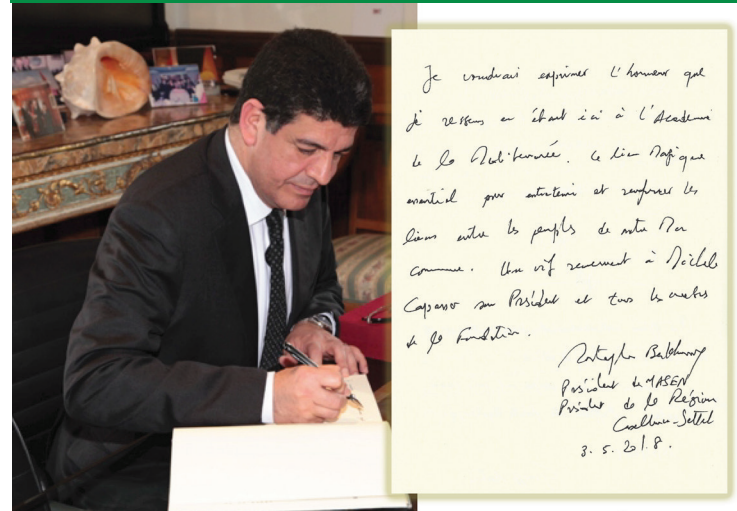 Je voudrais exprimer l'honneur que
je ressens en étant ici à l'Académie
de la Méditerranée. Ce lien magique
essentiel pour entretenir et renforcer les
liens entre les peuples de notre Mer
commune. Un vif remerciement à Michele
Capasso son Président et tous les membres
de la Fondation.
Mustapha Bakkoury
Président de MASEN
Président de la Région
Casablanca-Settat
3.5.2018.